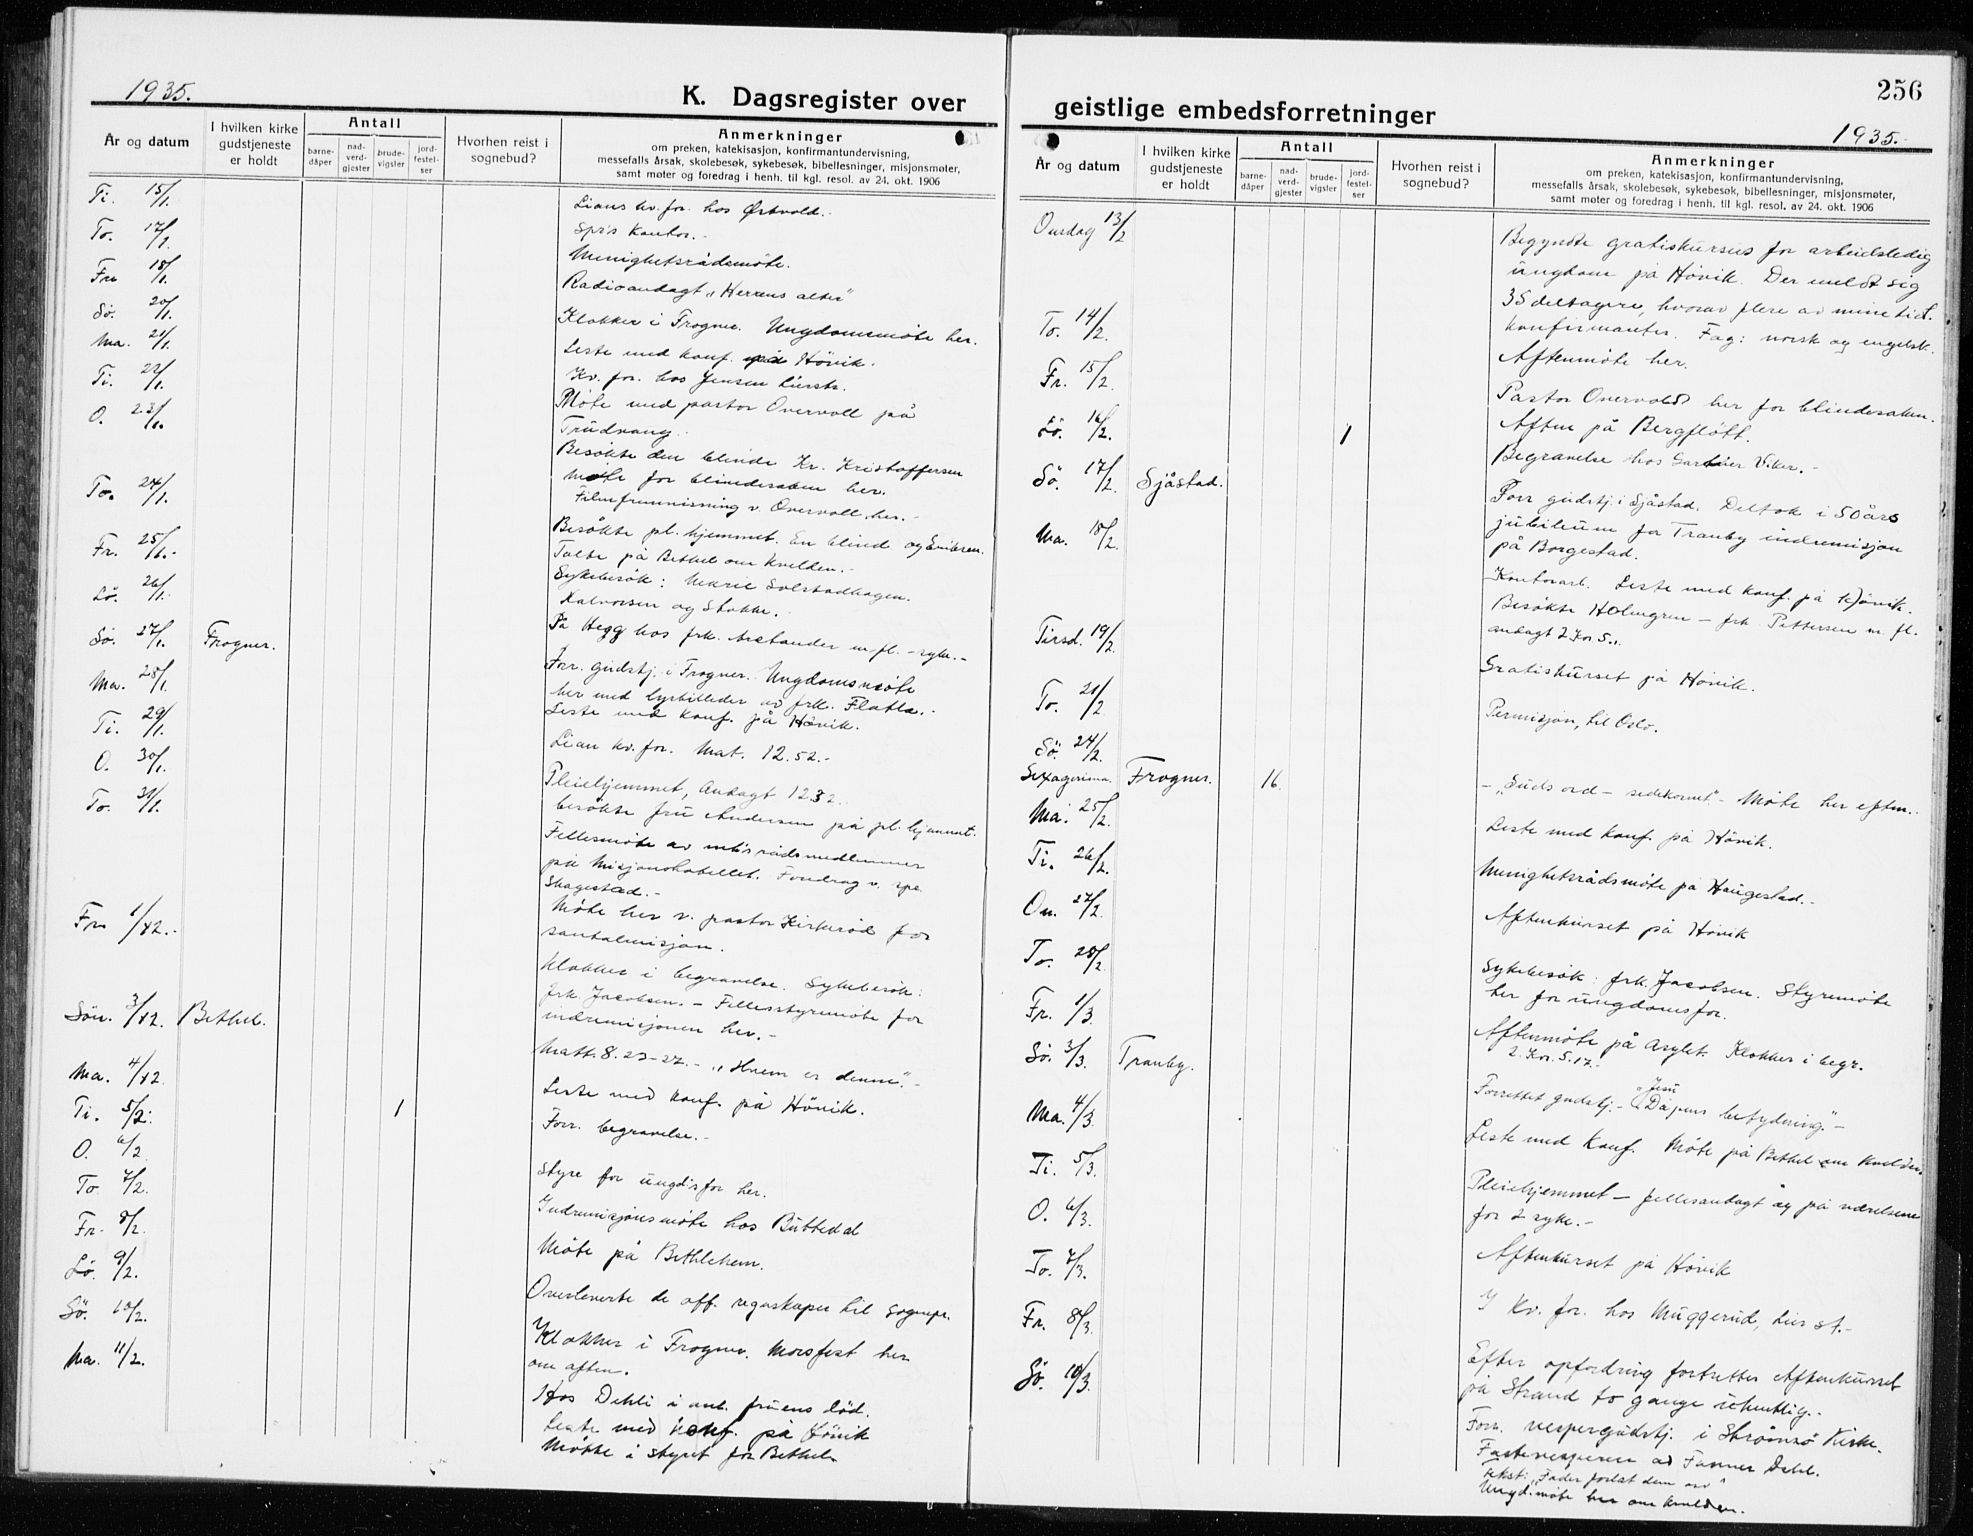 1935.
K. Dagsregister over
År og datum
I hvilken kirke
gudstjeneste
er holdt
Antall
barne-
dåper
nad-
verd-
gjester
brude-
vigsler
jord-
festel-
ser
Hvorhen reist i
sognebud?
Anmerkninger
om preken, katekisasjon, konfirmantundervisning,
messefalls årsak, skolebesøk, sykebesøk, bibellesninger, misjonsmøter,
samt møter og foredrag i henh. til kgl. resol. av 24. okt. 1906
Ti. 15/1. Lians kv. for. hos Østvold.
To. 17/1. Spr's kontor.
Fre 18/1. Menighetsrådsmöte.
Radioandagt „Herrens alter"
Sö. 20/1. Klokker i Frogner. Ungdomsmöte her.
Ma. 21/1. Leste med konf. på Hövik.
Ti. 22/1. Kv. for. hos Jensen
O. 23/1. Möte med pastor Overvoll på
Trudvang.
Besökte den blinde Kr. Kristoffersen
To. 24/1. Möte for blindesaken her.
Filmfremvisning v. Overvoll her.
Fr. 25/1. Besökte pl. hjemmet. En blind og
Talte på Bethel om kvelden.
Lö. 26/1. Sykebesök: Marie Solstadhagen.
Halvorsen og Stokke.
Sö. 27/1. Frogner. På Hegg hos frk. m. fl. - syke.
Ma. 28/1. Forr. gudstj. i Frogner. Ungdomsmöte
her med lysbilleder av frk. Flatla.
Ti. 29/1. Leste med konf. på Hövik.
O. 30/1. Lian kv. for. Mat. 12.52.-
To. 31/1. Pleiehjemmet, Andagt
besökte fru Andersen på pl. hjemmet.
Fellesmöte av mh's rådsmedlemmer
på Misjonshotellet. Foredrag v.
Skagestad.-
Fre 1/2. Möte her v. pastor Kirkeröd for
santalmisjon.
Klokker i begravelse. Sykebesök:
frk. Jacobsen. - Fellesstyremöte for
indremisjonen her.-
Sön. 3/2. Bethel. Matt. 8. 23-27.- „Hvem er denne".-
Ma. 4/2. Leste med konf. på Hövik.
Ti. 5/2. 1 Forr. begravelse.-
O. 6/2
To. 7/2. Styre for ungd's for her.
Fr. 8/2. Indremisjonsmöte hos Bubbedal
Lö. 9/2. Möte på Bethlehem.
Sö. 10/2. Overleverte de off. regnskaper til sognepr.
Ma. 11/2. Klokker i Frogner. Morsfest her
om aften.
Hos Dehli i anl. fruens död.
Leste med konf. på Hövik
Möte i styret for Bethel
256
geistlige embedsforretninger
1935.
År og datum
I hvilken kirke
gudstjeneste
er holdt
Antall
barne-
dåper
nad-
verd-
gjester
brude-
vigsler
jord-
festel-
ser
Hvorhen reist i
sognebud?
Anmerkninger
om preken, katekisasjon, konfirmantundervisning,
messefalls årsak, skolebesøk, sykebesøk, bibellesninger, misjonsmøter,
samt møter og foredrag i henh. til kgl. resol. av 24. okt. 1906
Onsdag 13/2 Begyndte gratiskursus for arbeidsledig
ungdom på Hövik. Der meldt sig
35 deltagere, hvorav flere av mine tidl.
To. 14/2. konfirmanter. Fag: norsk og engelsk.
Aftenmöte her.
Fr. 15/2. Pastor Overvoldt her for blindesaken.
Aften på Bergflött.
Lö. 16/2. 1 Begravelse hos Gartner Viker.-
Sö. 17/2. Sjåstad. Forr. gudstj. i Sjåstad. Deltok i 50 års
jubileum for Tranby indremisjon
på Borgestad.
Ma. 18/2. Kontorarb. Leste med konf. på Hövik.
Besökte Holmgren - frk. Pettersen m. fl.
andagt 2 Kor. 5.
Tirsd. 19/2. Gratiskurset på Hövik.
To. 21/2 Permisjon, til Oslo.
Sö. 24/2.
Sexagesima. Frogner. 16. - „Guds ord - sedekornet".- Möte her eftm.
Ma. 25/2. Leste med konf. på Hövik.
Ti. 26/2. Menighetsrådsmöte på Haugestad.-
On. 27/2. Aftenkurset på Hövik
To. 28/2. Sykebesök. frk. Jacobsen. Styremöte
her for ungdomsfor.
Fr. 1/3. Aftenmöte på Asylet. Klokker i begr.
2. Kor. 5. 17.-
Sö. 3/3. Tranby. Forrettet gudstj.- „Jesu Dåpens betydning".-
Ma. 4/3. Leste med konf. Möte på Bethel om kvelden.
Ti. 5/3. Pleiehjemmet - fellesandagt og på værelsene
for 2 syke.-
O. 6/3. Aftenkurset på Hövik
To. 7/3. I kv. for. hos Muggerud, Lier st.-
Fr. 8/3. Efter opfordring fortsetter Aftenkurset
på Strand to gange ukentlig.
Sö. 10/3. Forr. vespergudstj. i Strömsö Kirke.
Fastevesperen av Fanner Dehl.
tekst: „Fader forlat dem osv"
Ungd.möte her om kvelden.